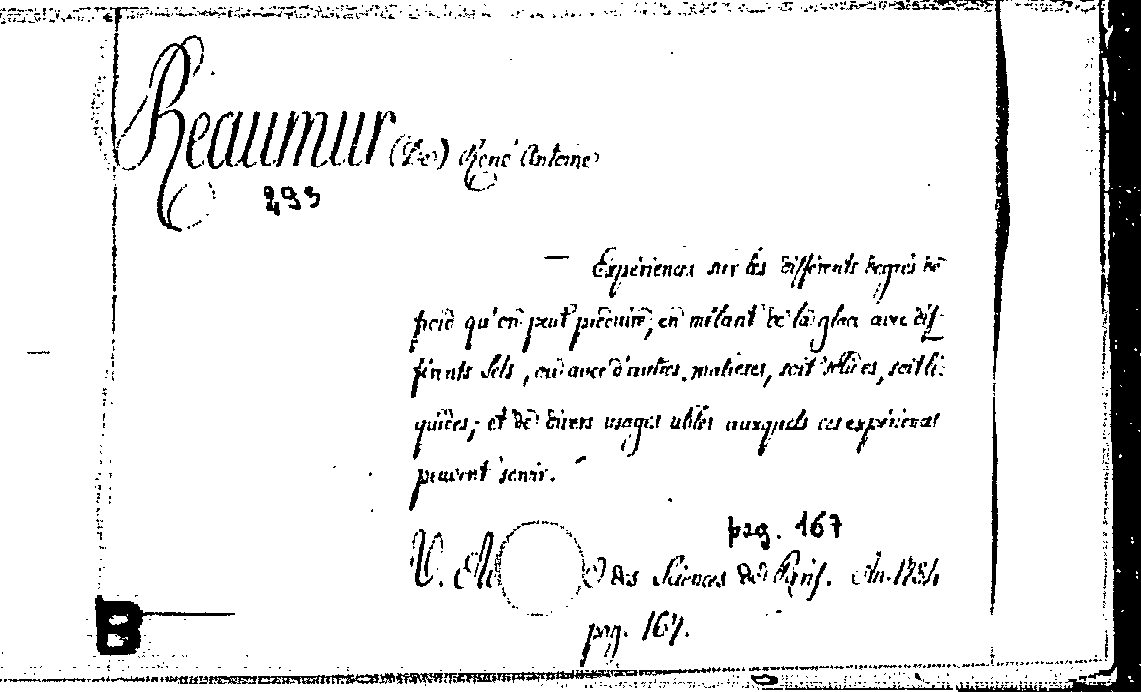 Reaumur (De) René Antoine
293
— Expériences sur les différents degrés de
froid qu'on peut produire, en mêlant de la glace avec dif-
férents sels, ou avec d'autres matieres, soit solides, soit li-
quides; et de divers usages utiles auxquels ces expériences
peuvent servir.
pag. 167
V. des Sciences de Paris. An. 1734
pag. 167.
B